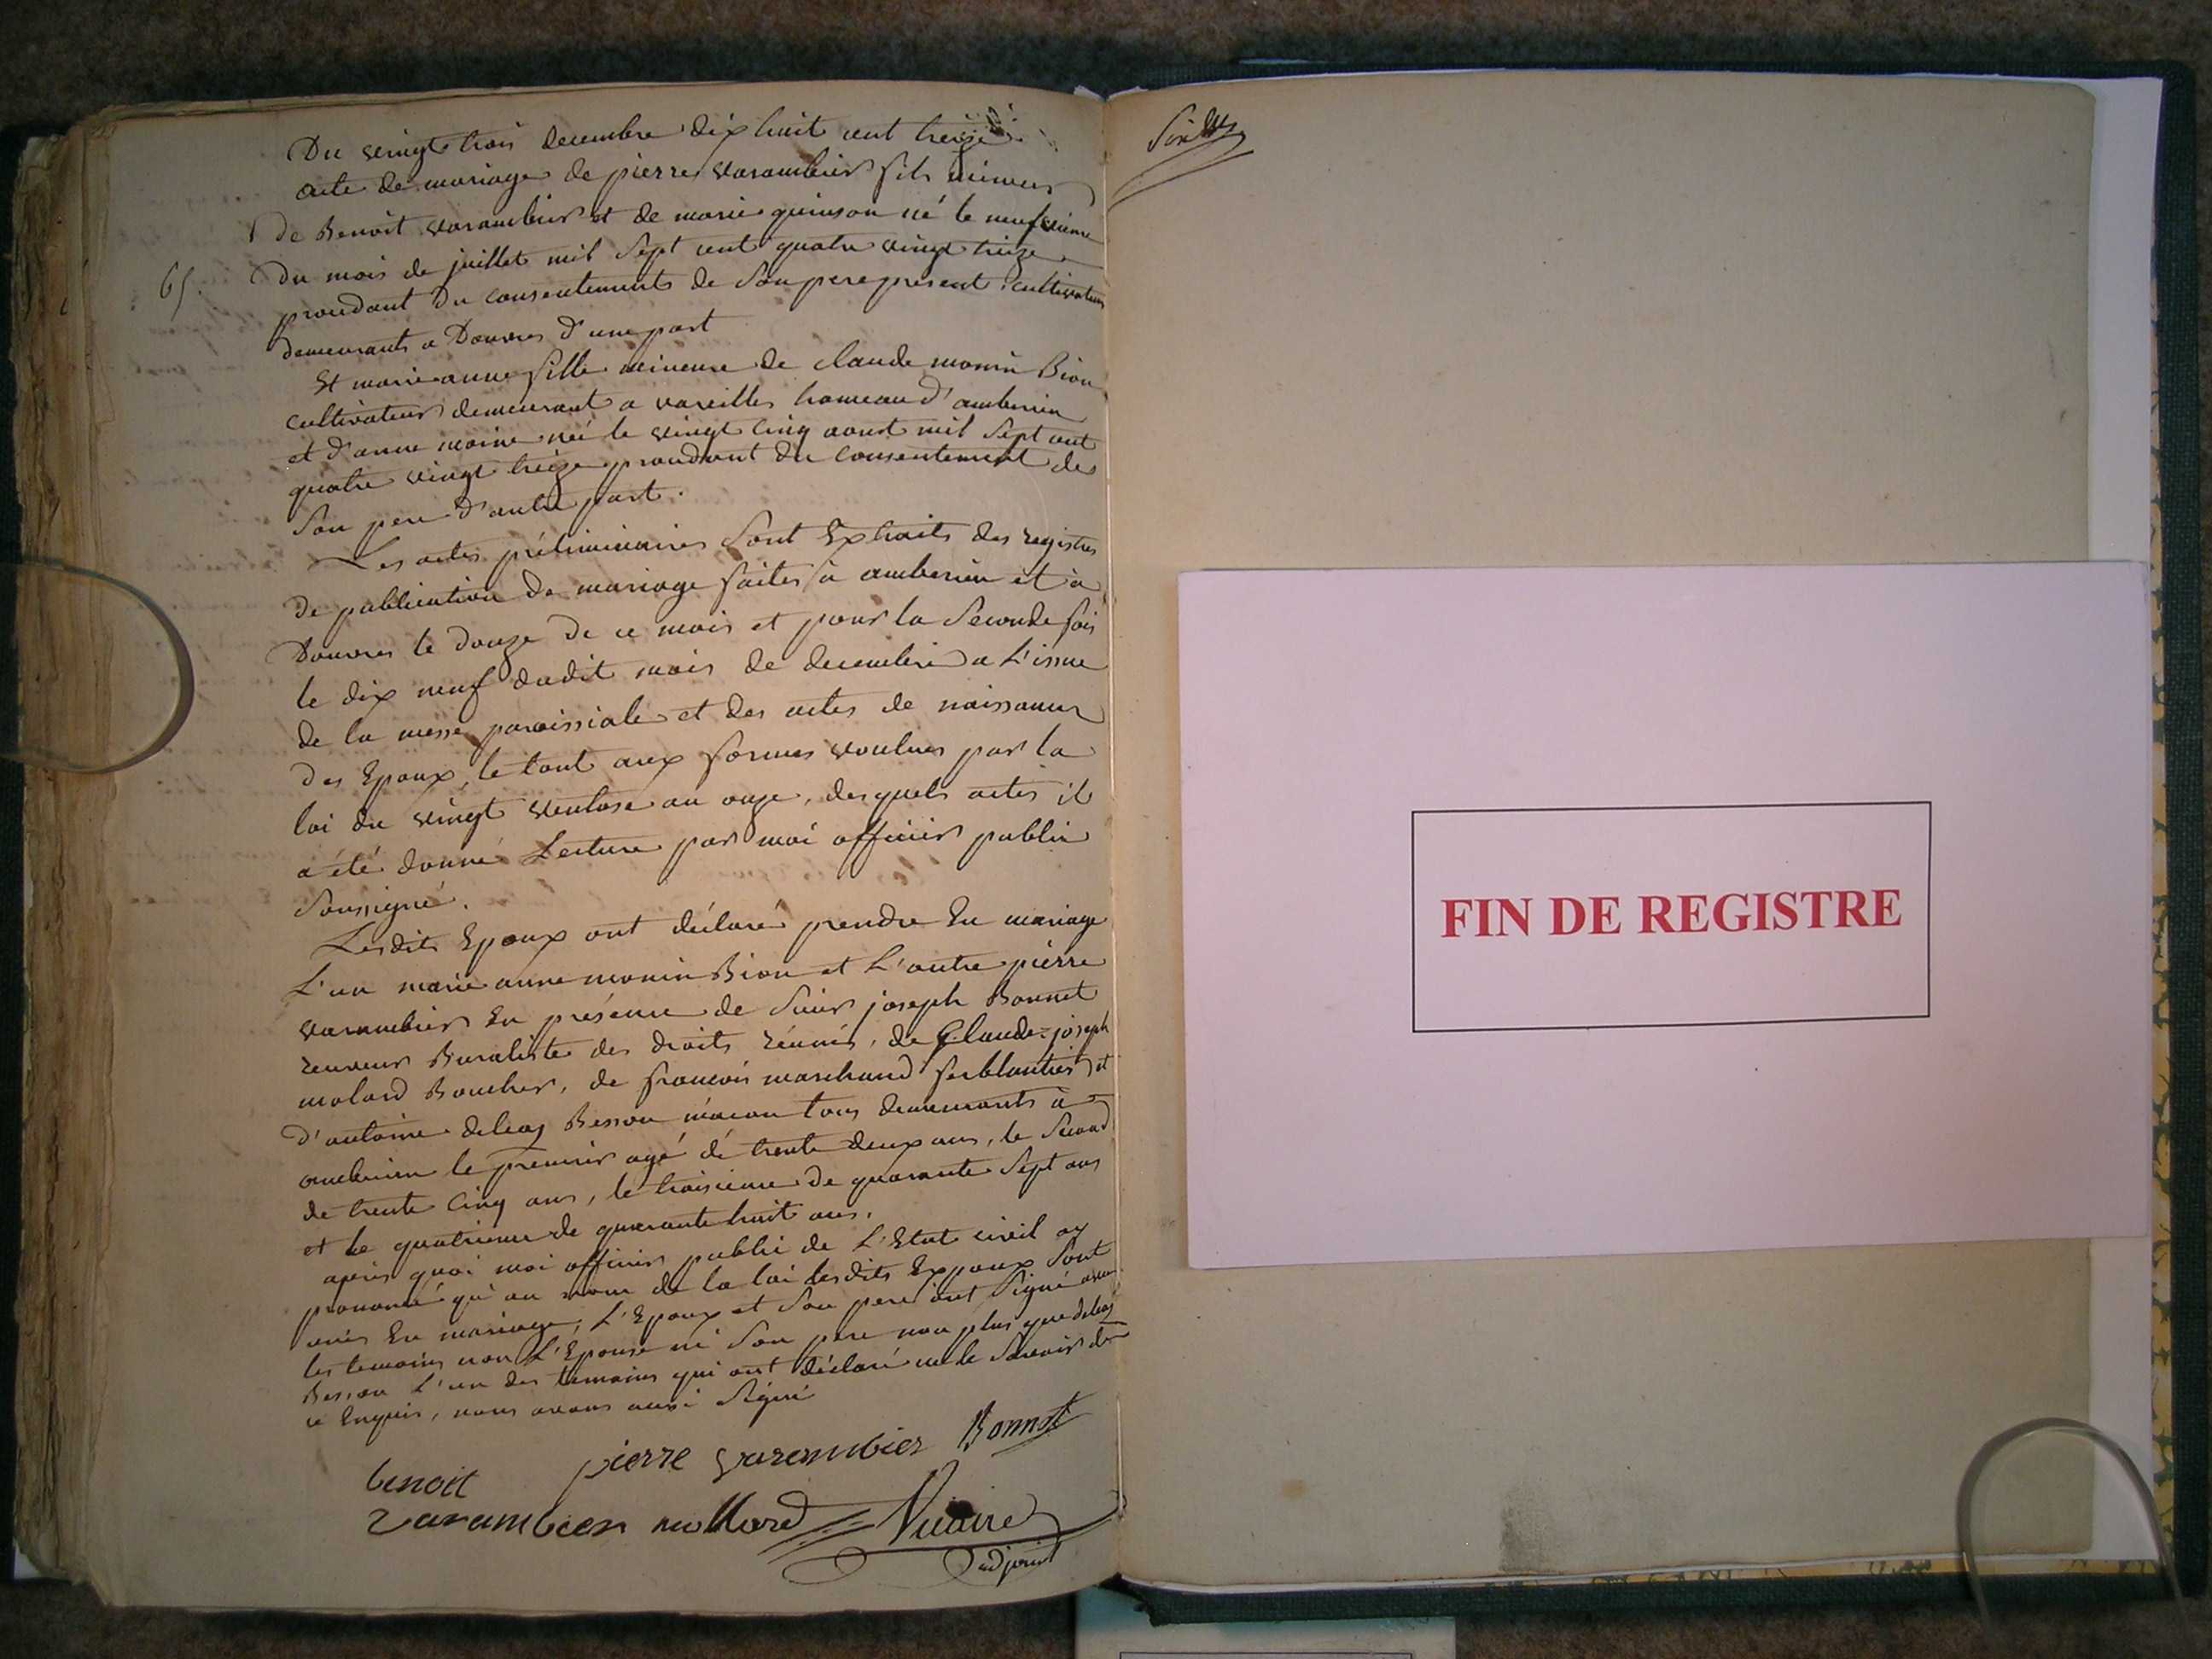 Du vingt trois decembre dix huit cent treize
acte de mariage de pierre varambier fils mineur
de Benoit varambier et de marie quinson né le neufvieme
65.
du mois de juillet mil sept cent quatre vingt treize
proudant du consentement de son pere present cultivateurs
demeurants a Douvres d'une part
Et marie anne fille mineure de claude monin Bion
cultivateur demeurant a vareilles hameau d'amberieu
et d'anne moine né le vingt cinq aoust mil sept cent
quatre vingt treize proudant du consentement de
son pere d'autre part.
Les actes préliminaires sont Extraits des registres
de publication de mariage faites à amberieu et à
Douvres le douze de ce mois et pour la seconde fois
le dix neuf dudit mois de decembre a L'issue
de la messe paroissiale et des actes de naissance
des Epoux, le tout aux formes voulues par la
loi du vingt ventose an onze, desquels actes il
a été donné Lecture par moi officier public
soussigné.
Lesdits Epoux ont déclaré prendre En mariage
L'un marie anne monin Bion et L'autre pierre
varambier En présence de sieur joseph Bonnet
receveur Buraliste des droits réunis, de Claude=joseph
molard Boucher, de francois marchand ferblantier et
d'antoine deleaz Besson macon tous demeurants à
amberieu le premier agé de trente deux ans, le second
de trente cinq ans, le troisieme de quarante sept ans
et le quatrieme de quarante huit ans.
apres quoi moi officier public de L'Etat civil ay
prononcé qu'au nom de la loi lesdits Expoux sont
unis En mariage, L'Epoux et son pere ont signé avec
les temoins non L'Epouse ni son pere non plus que deleaz
Besson L'un des temoins qui ont déclaré ne le savoir de
ce Enquis, nous avons aussi signé
benoit pierre varambier Bonnet
varambier mollard
adjoint
FIN DE REGISTRE